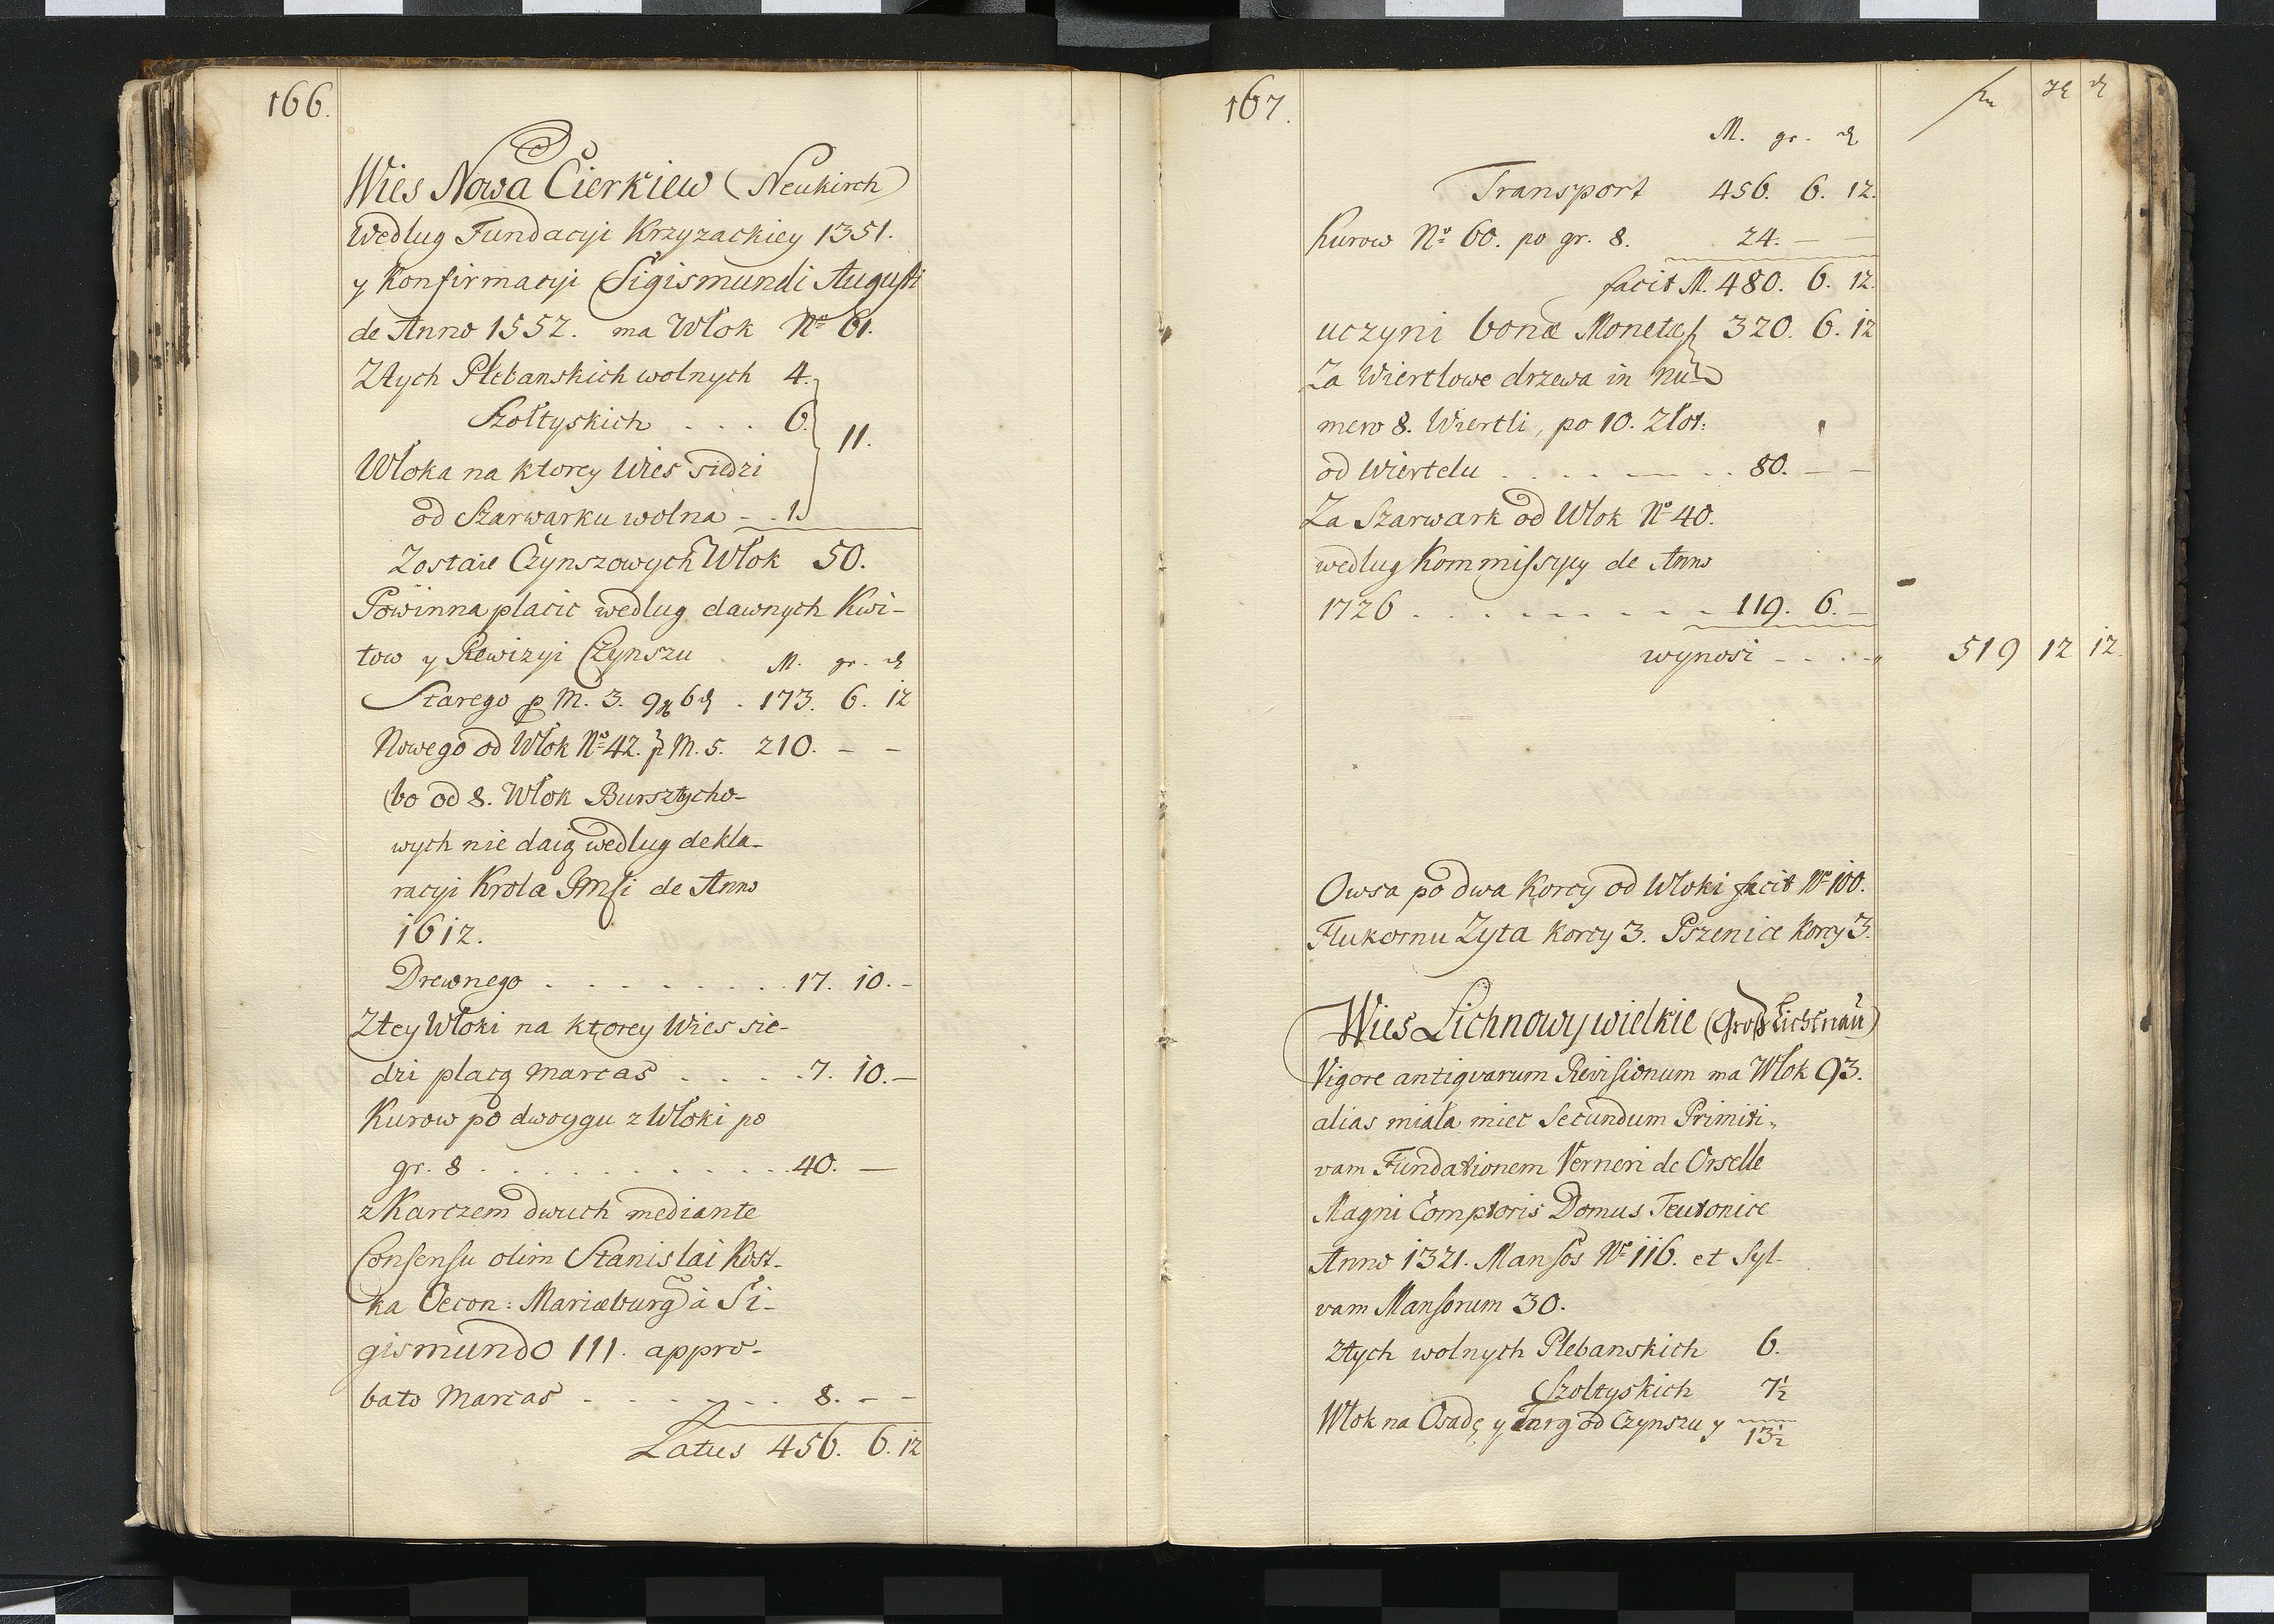 166.
Wies Nowa Cierkiew (Neukirch)
Według Fundacyi Krzyzackiey 1351.
y Konfirmacyi Sigismundi Augusti
de Anno 1552. ma Włok No 61.
Ztych Plebanskich wolnych 4.
Szołtyskich . . . 6.
11.
Włoka na ktorey Wies siedzi
od Szarwarku wolna - . 1.
Zostaie Czynszowych Włok 50.
Powinna płacic według dawnych Kwi-
tow y Rewizyi Czynszu M. gr. ₰
Starego p M. 3. 9 6₰ . 173. 6. 12
Nowego od Włok No 42. p M. 5. 210. - -
(bo od 8. Włok Bursztycho-
wych nie daią według dekla-
racyi Krola JMsi de Anno
1612.
Drewnego . . . . . . . . . 17. 10. -
Ztey Włoki na ktorey Wies sie-
dzi płacą marcas . . . . 7. 10. -
Kurow po dwoygu z Włoki po
gr. 8 . . . . . . . . . . . . 40. —
z Karczem dwuch mediante
Consensu olim Stanislai Kost-
ka Oecon: Mariæburg à Si-
gismundo III. appro-
bato Marcas - . - . - . . 8. - -
Latus 456. 6. 12
167.
M. gr. ₰
Transport 456. 6. 12.
Kurow No 60. po gr. 8. 24. — —
facit M. 480. 6. 12.
uczyni bonæ Monetæ 320. 6. 12
Za Wiertlowe drzewa in Nu-
mero 8. Wiertli, po 10. Złot:
od Wiertelu . . . . — . . 80. — —
Za Szarwark od Włok No 40.
według Kommissyey de Anno
1726 . . . . - . - - . 119. 6. —
wynosi - - . - . 519 12 12.
Owsa po dwa Korcy od Włoki facit No 100.
Zyta Korcy 3. Pszenice Korcy 3.
Wies Lichnowy wielkie (Groß Lichtnau)
Vigore antiqvarum Revisionum ma Włok 93.
alias miała miec Secundum Primiti„
vam Fundationem Verneri de Orselle
Magni Comptoris Domus Teutonice
Anno 1321. Mansos No 116. et Syl-
vam Mansorum 30.
Ztych wolnych Plebanskich 6.
Szoltyskich 7½
Włok na Osadę y Targ od Czynszu y 13½